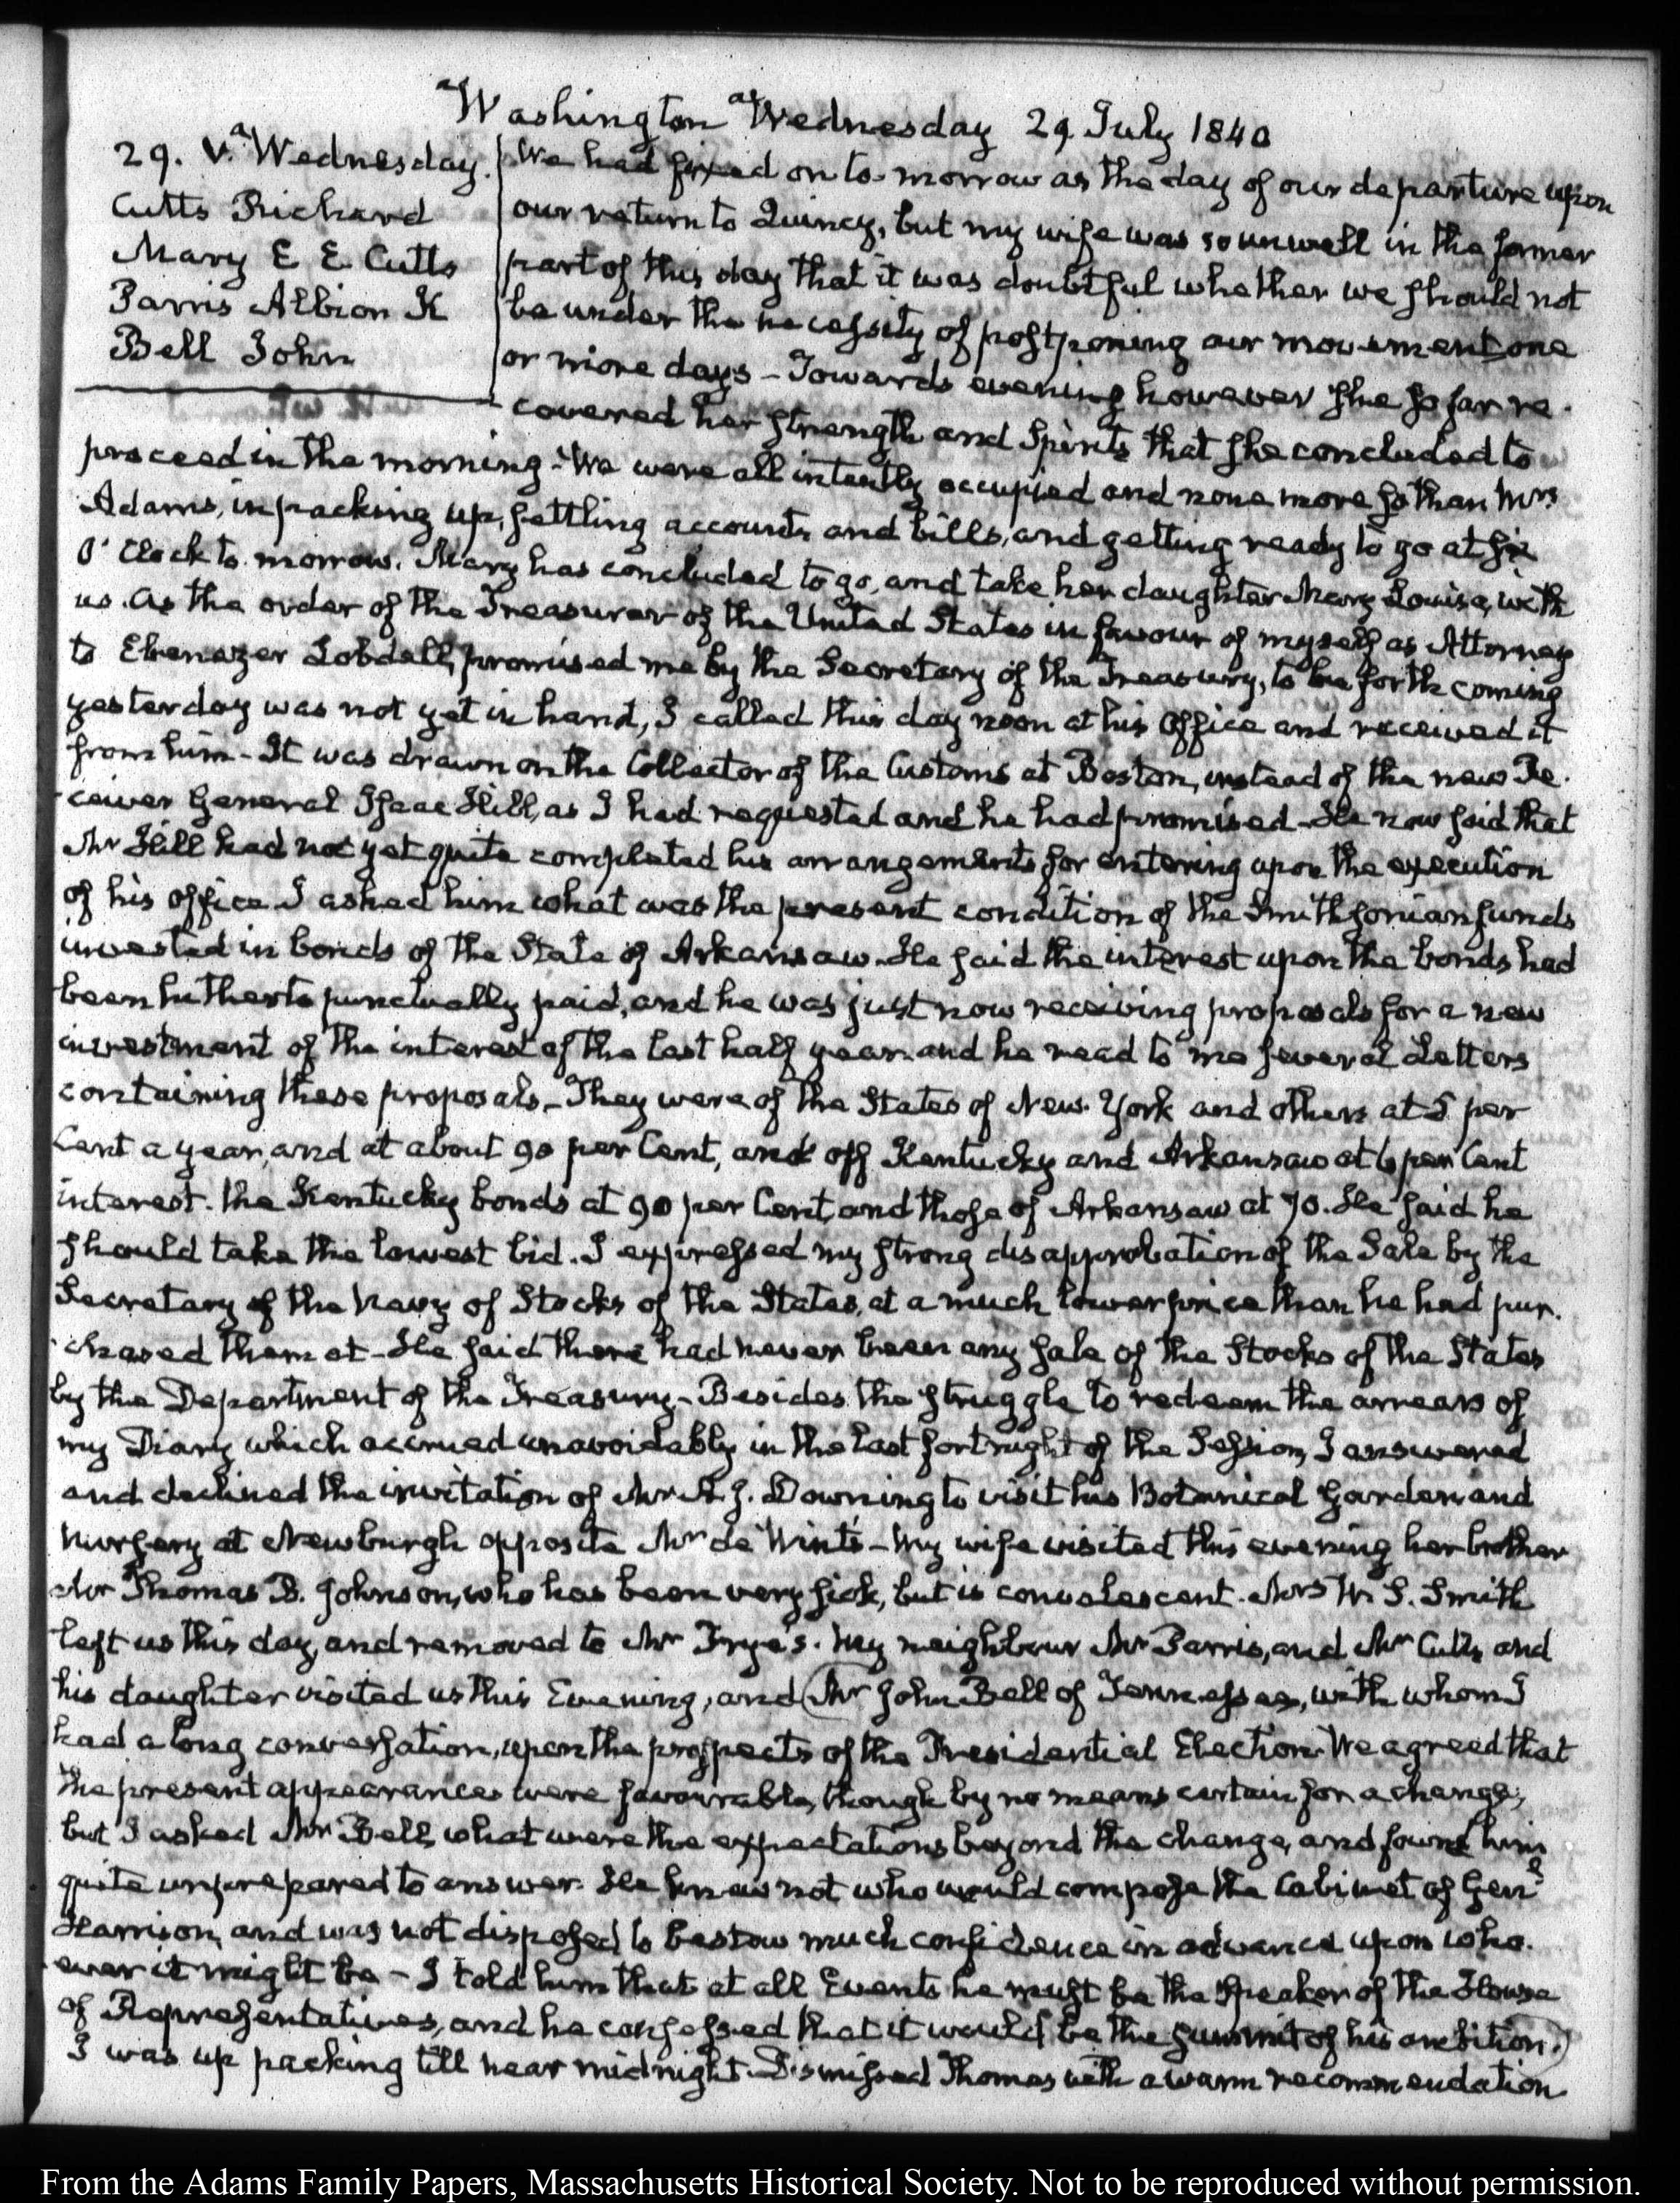 Washington Wednesday 29 July 1840
29. V. Wednesday.
Cutts Richard
Mary E E. Cutts
Parris Albion K
Bell John
We had fixed on to-morrow as the day of our departure upon
our return to Quincy, but my wife was so unwell in the former
part of this day that it was doubtful whether we should not
be under the necessity of postponing our movement one
or more days – Towards evening however she so far re-
covered her strength and Spirits that she concluded to
proceed in the morning – We were all intently occupied and none more so than Mrs
Adams, in packing up, settling accounts and bills, and getting ready to go at six
O' Clock to-morrow. Mary has concluded to go, and take her daughter Mary Louisa, with
us. As the order of the Treasurer of the United States in favour of myself as Attorney
to Ebenezer Lobdell, promised me by the Secretary of the Treasury, to be forthcoming
yesterday was not yet in hand, I called this day noon at his Office and received it
from him – It was drawn on the Collector of the Customs at Boston, instead of the new Re-
ceiver General Isaac Hill, as I had requested and he had promised – He now said that
Mr Hill had not yet quite completed his arrangements for entering upon the execution
of his office. I asked him what was the present condition of the Smithsonian funds
invested in bonds of the State of Arkansaw. He said the interest upon the bonds had
been hitherto punctually paid, and he was just now receiving proposals for a new
investment of the interest of the last half year. and he read to me several Letters
containing these proposals – They were of the States of New-York and others at 5 per
Cent a year, and at about 90 per Cent, and off Kentucky and Arkansaw at 6 per Cent
interest. the Kentucky bonds at 90 per Cent, and those of Arkansaw at 70. He said he
should take the lowest bid. I expressed my strong disapprobation of the Sale by the
Secretary of the Navy of Stocks of the States, at a much lower price than he had pur-
chased them at – He said there had never been any sale of the Stocks of the States
by the Department of the Treasury – Besides the struggle to redeem the arrears of
my Diary which accrued unavoidably in the last fortnight of the Session, I answered
and declined the invitation of Mr A. J. Downing to visit his Botanical Garden and
Nursery at Newburgh opposite Mr de Wint's – My wife visited this evening her brother
Mr Thomas B. Johnson, who has been very sick, but is convalescent. Mrs W. S. Smith
left us this day, and removed to Mr Frye's. My neighbour Mr Parris, and Mr Cutts and
his daughter visited us this Evening, and (Mr John Bell of Tennessee, with whom I
had a long conversation, upon the prospects of the Presidential Election. We agreed that
the present appearances were favourable, though by no means certain for a change;
but I asked Mr Bell, what were the expectations beyond the change, and found him
quite unprepared to answer. He knew not who would compose the Cabinet of Genl
Harrison, and was not disposed to bestow much confidence in advance upon who-
ever it might be – I told him that at all Events he must be the Speaker of the House
of Representatives, and he confessed that it would be the summit of his ambition.)
I was up packing till near midnight. Dismissed Thomas with a warm recommendation
From the Adams Family Papers, Massachusetts Historical Society. Not to be reproduced without permission.